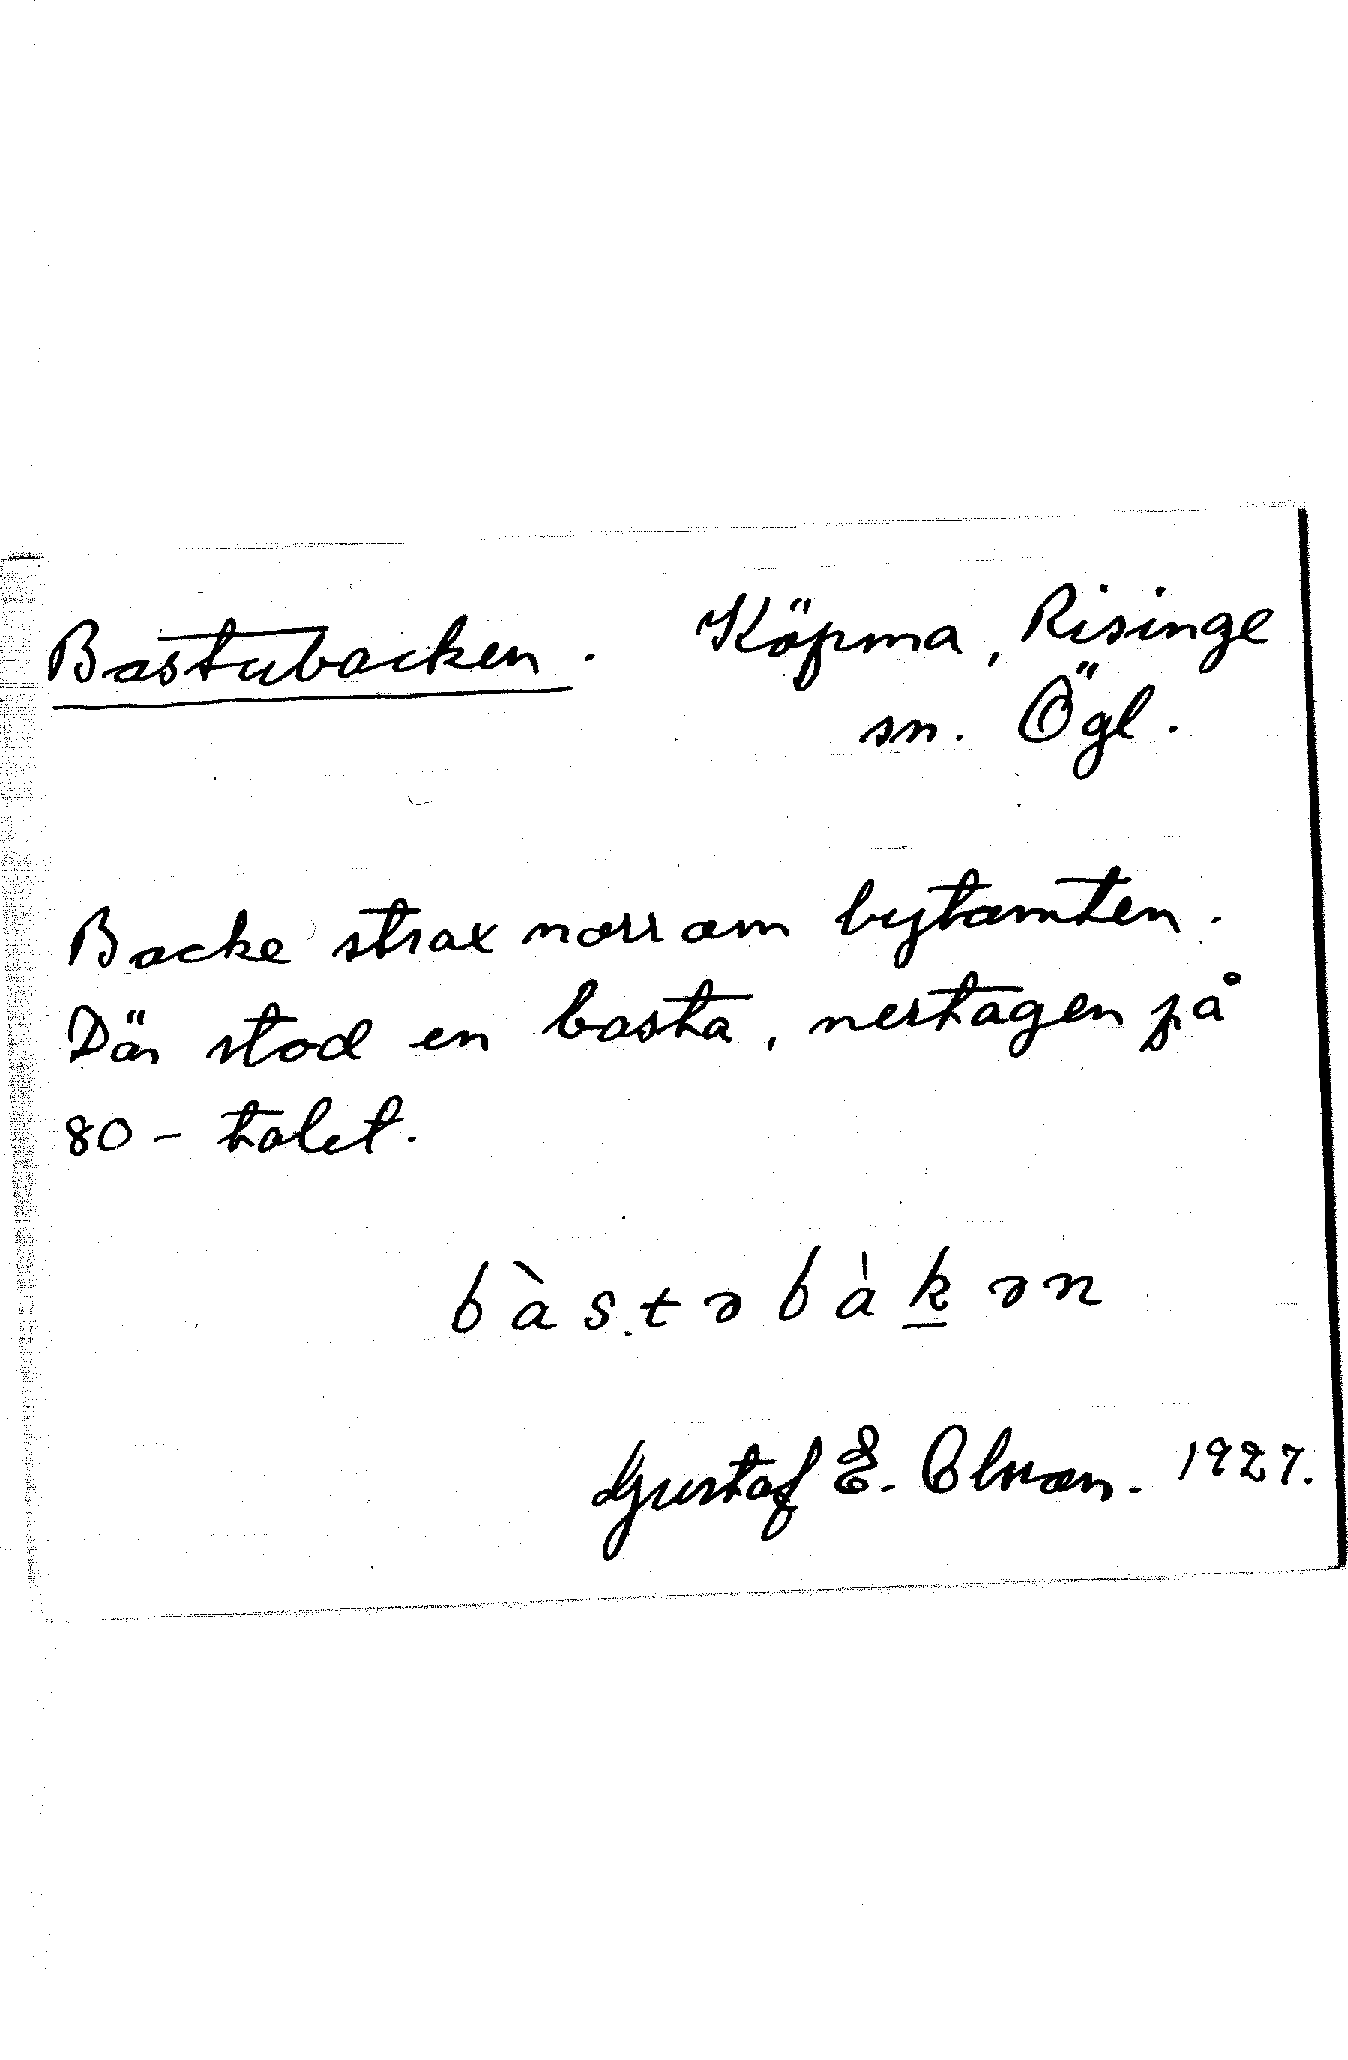 Bastubacken. Köpma, Risinge
sn. Ögl.
Backe strax norr om bytomten.
Där stod en basta, nertagen på
80-talet.
bàstəbàk̲ən
Gustaf E. 1927.